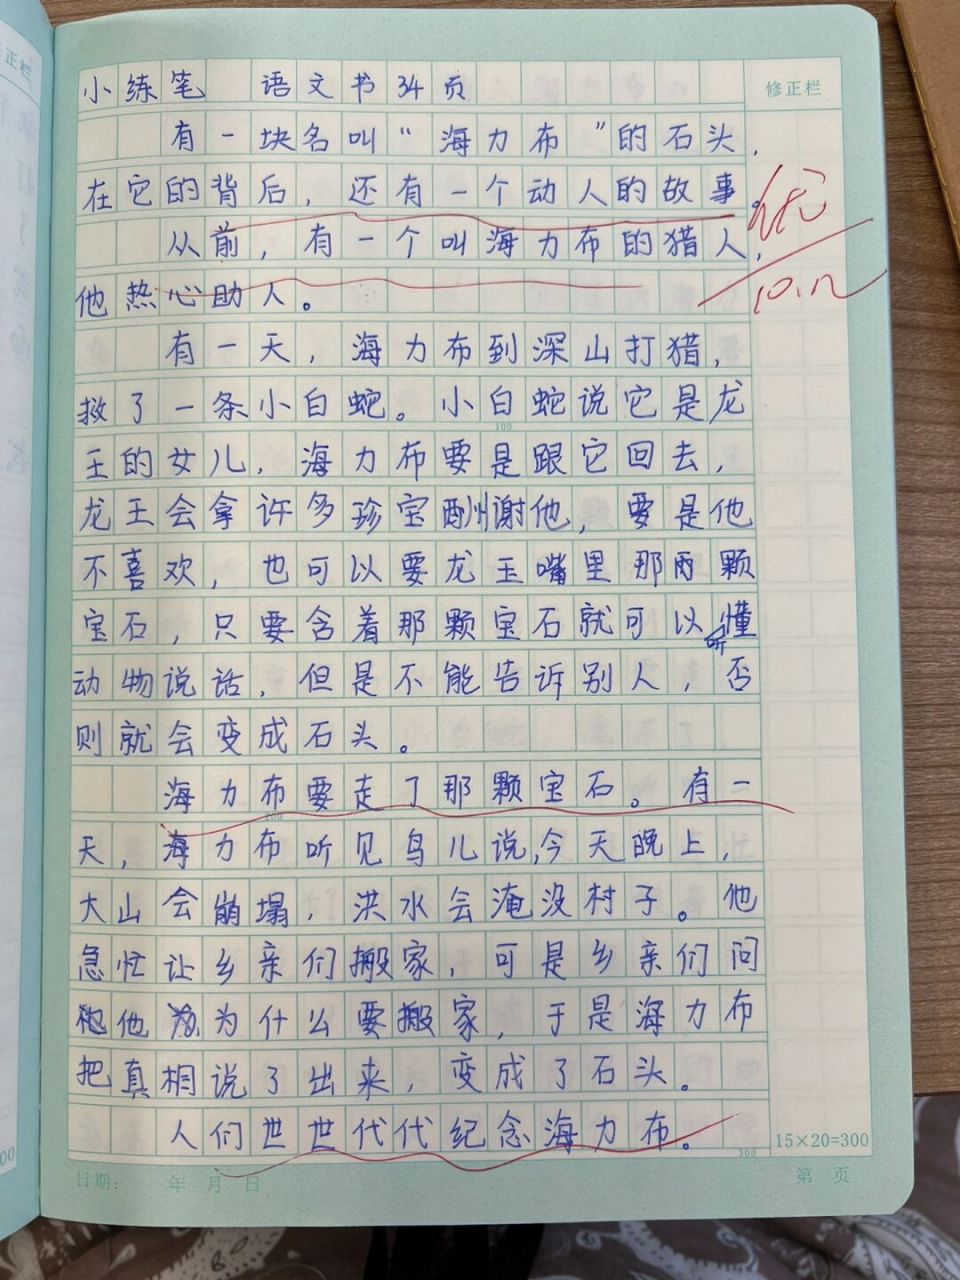 小练笔 语文书34页
修正栏
有一块名叫“海力布”的石头，
在它的背后，还有一个动人的故事。
优
从前，有一个叫海力布的猎人，
他热心助人。
10.12
有一天，海力布到深山打猎，
救了一条小白蛇。小白蛇说它是龙
100
王的女儿，海力布要是跟它回去，
龙王会拿许多珍宝酬谢他，要是他
不喜欢，也可以要龙王嘴里那两颗
宝石，只要含着那颗宝石就可以听懂
动物说话，但是不能告诉别人，否
则就会变成石头。
海力布要走了那颗宝石。有一
200
天，海力布听见鸟儿说，今天晚上，
大山会崩塌，洪水会淹没村子。他
急忙让乡亲们搬家，可是乡亲们问
他为什么要搬家，于是海力布
把真相说了出来，变成了石头。
人们世世代代纪念海力布。
300
15×20=300
日期： 年 月 日
第 页